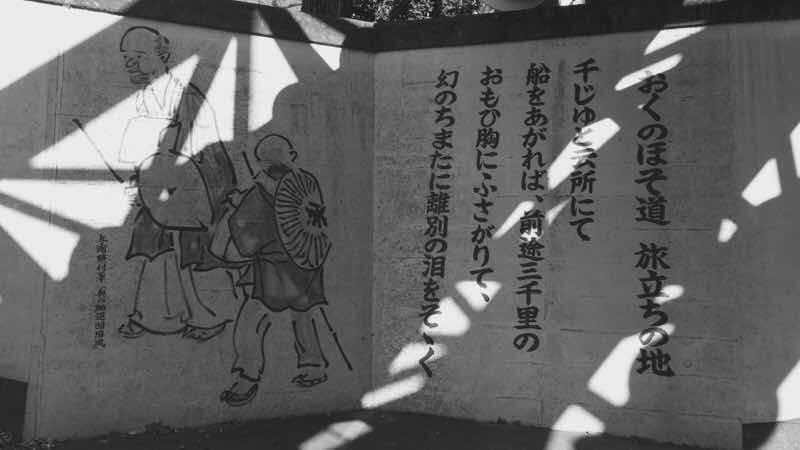 おくのほそ道　旅立ちの地
千じゆと云所にて
船をあがれば、前途三千里の
おもひ胸にふさがりて、
幻のちまたに離別の泪をそゝく